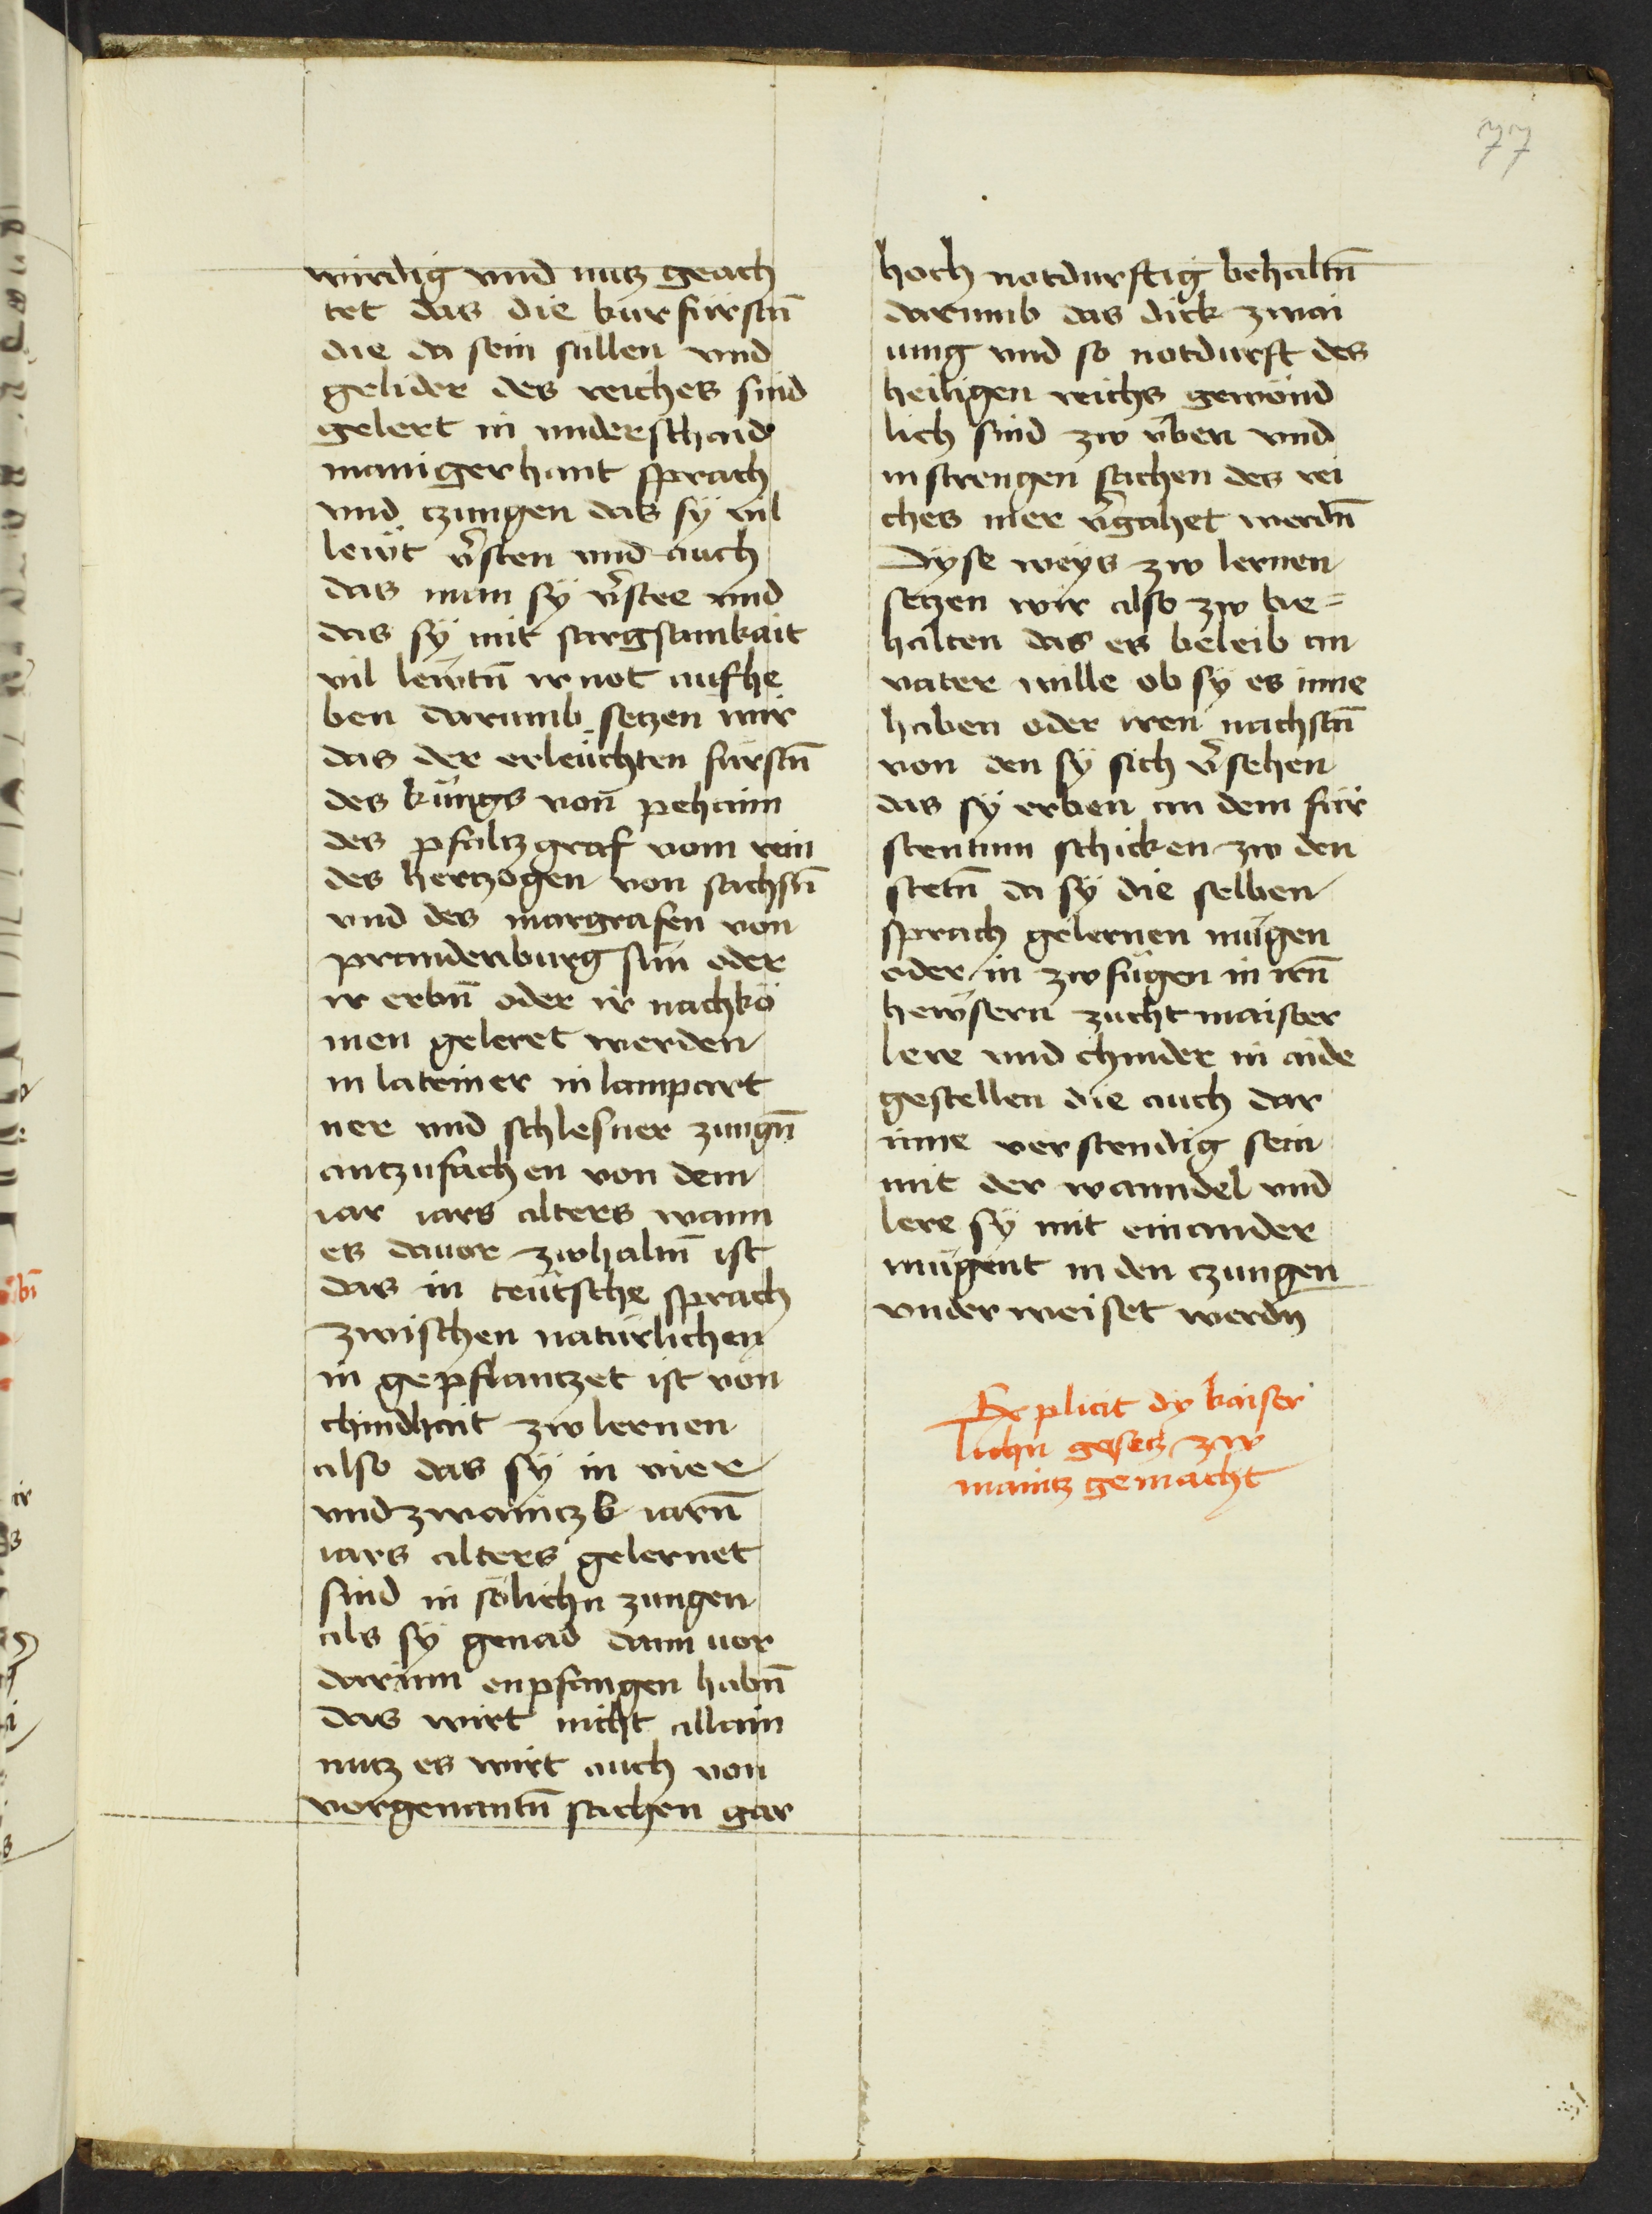 77
wirdig vnd nutz geach
tet das die kurfürstn̄
die da sein süllen vnd
gelider des reiches sind
gelert in vnderschaid
manigerhant sprach
vnd czungen das sÿ vil
lewt v̄sten vnd auch
das man sÿ v̄stee vnd
das sÿ mit sargsamkait
vil lewtn̄ ir not aufhe
ben darumb setzen wir
das der erleüchten fürstn̄
des küngs von pehaim
des pfaltzgraf vom rein
des hertzogen von sachsn̄
vnd des margrafen von
prandenburg sün oder
ir erbn̄ oder ir nachkö
men geleret werden
in lateiner in lampart
ner vnd schlesner zungn̄
antzufachen von dem
iar iars alters wann
es dauor zwhaltn̄ ist
das in teütsche sprach
zwischen natürlichen
in gepflantzet ist von
chindhait zw lernen
also das sÿ in vier
vnd zwaintzk iarn̄
iars alters gelernet
sind in sölichn zungen
als sÿ genad dann vor
darinn enpfangen habn̄
das wirt nicht allain
nutz es wirt auch von
vorgenantn̄ sachen gar
hoch notdurftig behaltn̄
darumb das dick zwai
ung vnd so notdurft des
heiligen reichs gewönd
lich sind zw v̈ben vnd
in strengen sachen des rei
ches mer v̄gahet werdn̄
Dÿse weÿs zw lernen
setzen wir also zw be=
halten das es beleib an
vater wille ob sÿ es inne
haben oder iren nachstn̄
von den sÿ sich v̄sehen
das sÿ erben an dem für
stentum schicken zw den
stetn̄ da sÿ die selben
sprach gelernen mügen
oder in zwfügen in irn̄
hewsern zuchtmaister
lere vnd chinder in aide
gestellen die auch dar
inne verstendig sein
mit der wanndel vnd
lere sÿ mit einander
mügent in den czungen
vnderweiset werdn
Explicit dy kaiser
lichn gesetz zw
maintz gemacht